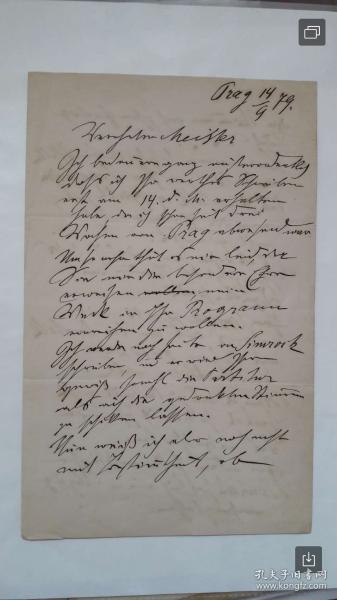 Prag 14/9 79.
Verehrter Meister
Ich bedauere ganz außerordentlich
dass ich Ihr werthes Schreiben
erst am 14. d. M. erhalten
habe, da ich schon seit drei
Wochen von Prag abwesend war
Umsomehr thut es mir leid da
Sie mir die besondere Ehre
erweisen wollen mein
Werk in Ihr Programm
einreihen zu wollen.
Ich werde noch heute an Simrock
schreiben und er wird Ihnen
gewiß sowohl die Partitur
als auch die gedruckten Stimmen
zu schicken lassen.
Nun weiß ich aber noch nicht
mit Bestimmtheit, ob
孔夫子旧书网
www.kongfz.com